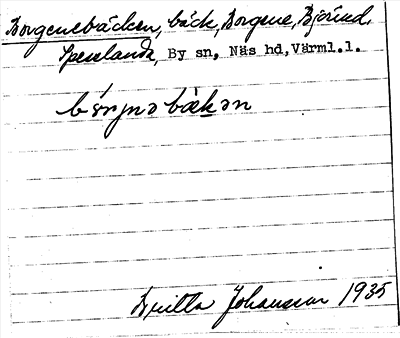 Borgenebäcken, bäck, Borgene, Björnid,
Speselanda, By sn, Näs hd, Värml.l.
bórjnəbäkən
Britta Johansson 1935